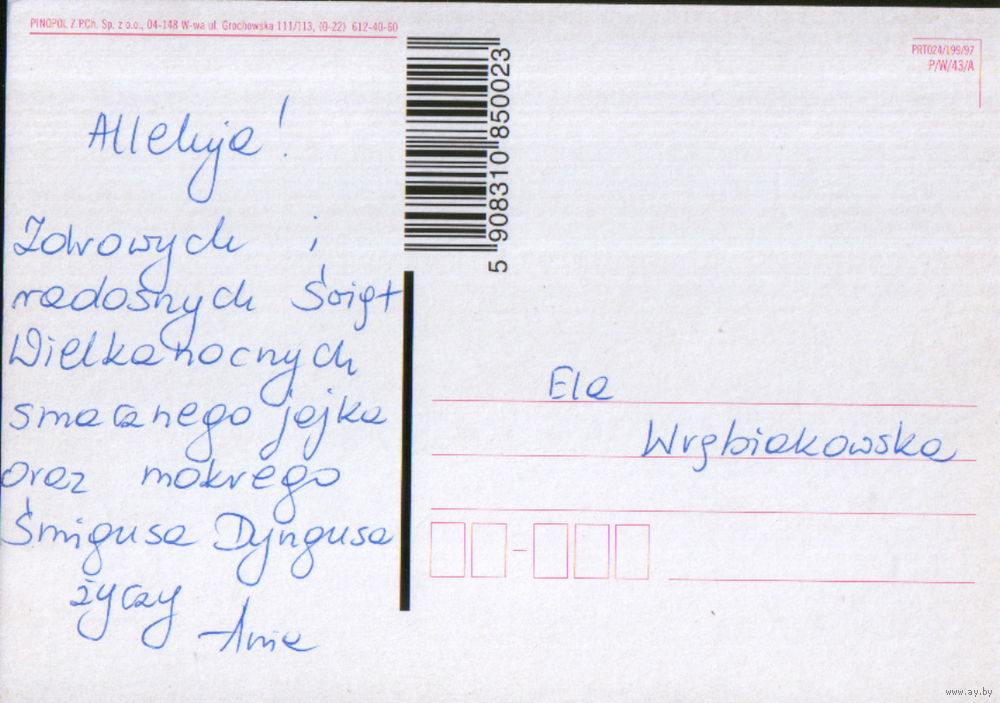 PINOPOL Z.P.Ch. Sp. z o.o., 04-148 W-wa ul. Grochowska 111/113, (0-22) 612-40-60
PRT024/199/97
P/W/43/A
5 908310 850023
Alleluja!
Zdrowych i
radosnych Świąt
Wielkanocnych
smacznego jajka
oraz mokrego
Śmigusa Dyngusa
życzy
Ania
Ela
Wrębiakowska
www.ay.by